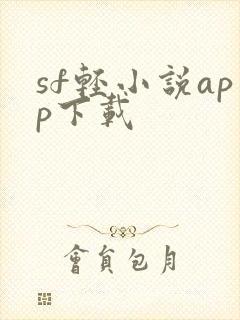 sf輕小説ap
p下載
會員包月